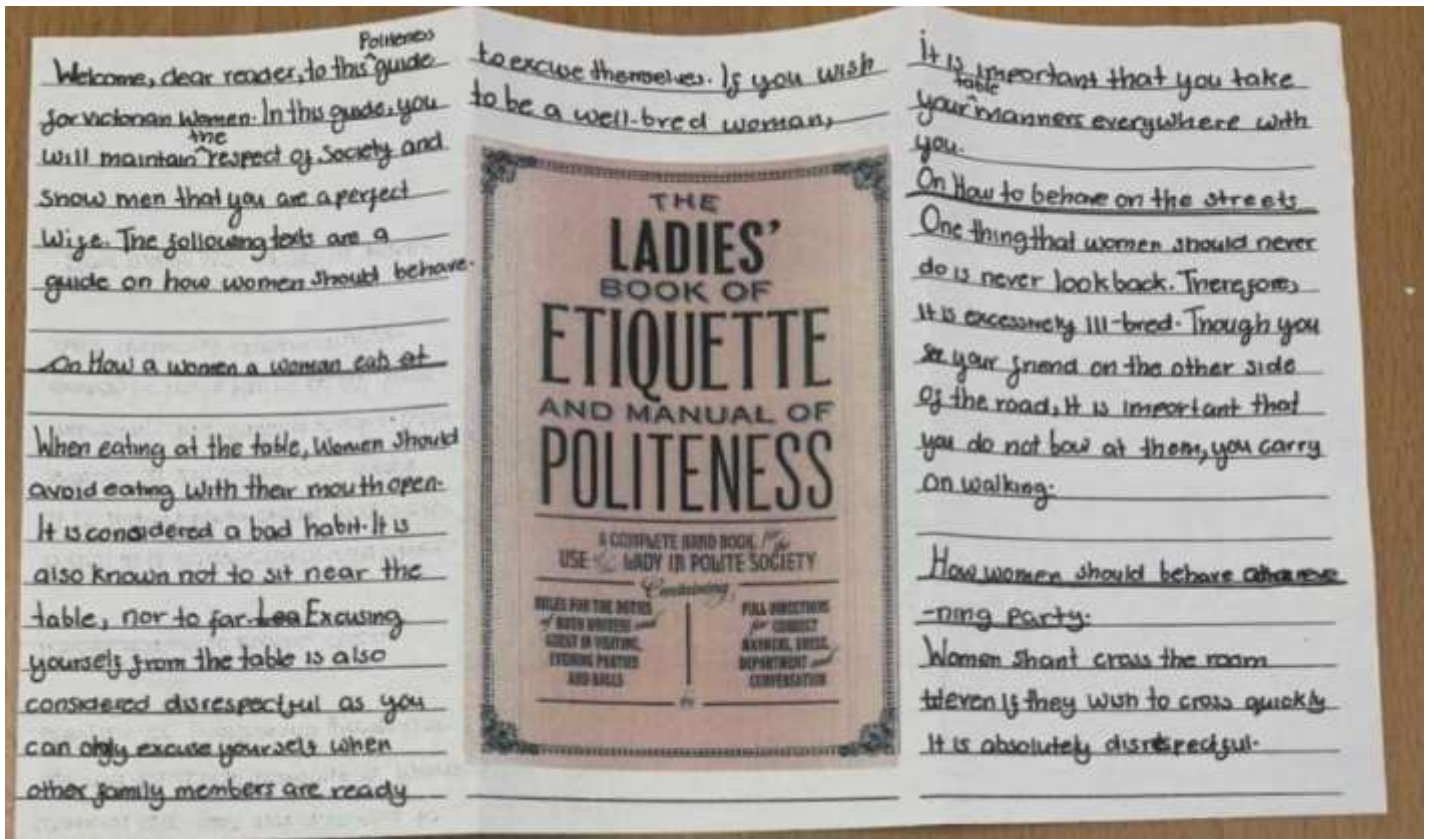 Welcome, dear reader, to this Politeness guide
for victorian women. In this guide, you
will maintain the respect of society and
show men that you are a perfect
wife. The following texts are a
guide on how women should behave.
On How a women a woman eats at
When eating at the table, Women should
avoid eating with their mouth open.
It is considered a bad habit. It is
also known not to sit near the
table, nor to far. Lea Excusing
yourself from the table is also
considered disrespectful as you
can only excuse yourself when
other family members are ready
to excuse themselves. If you wish
to be a well-bred woman,
THE
LADIES'
BOOK OF
ETIQUETTE
AND MANUAL OF
POLITENESS
A COMPLETE HAND BOOK for the
USE of the LADY IN POLITE SOCIETY
Containing
RULES FOR THE DUTIES
of BOTH HOSTESS and
GUEST IN VISITING,
EVENING PARTIES
AND BALLS
FULL DIRECTIONS
for CORRECT
MANNERS, DRESS,
DEPORTMENT and
CONVERSATION
It is important that you take
your table manners everywhere with
you.
On How to behave on the streets
One thing that women should never
do is never look back. Therefore,
It is excessively ill-bred. Though you
see your friend on the other side
of the road, it is important that
you do not bow at them, you carry
on walking.
How women should behave
-ning party.
Women shant cross the room
even if they wish to cross quickly
It is absolutely disrespectful.